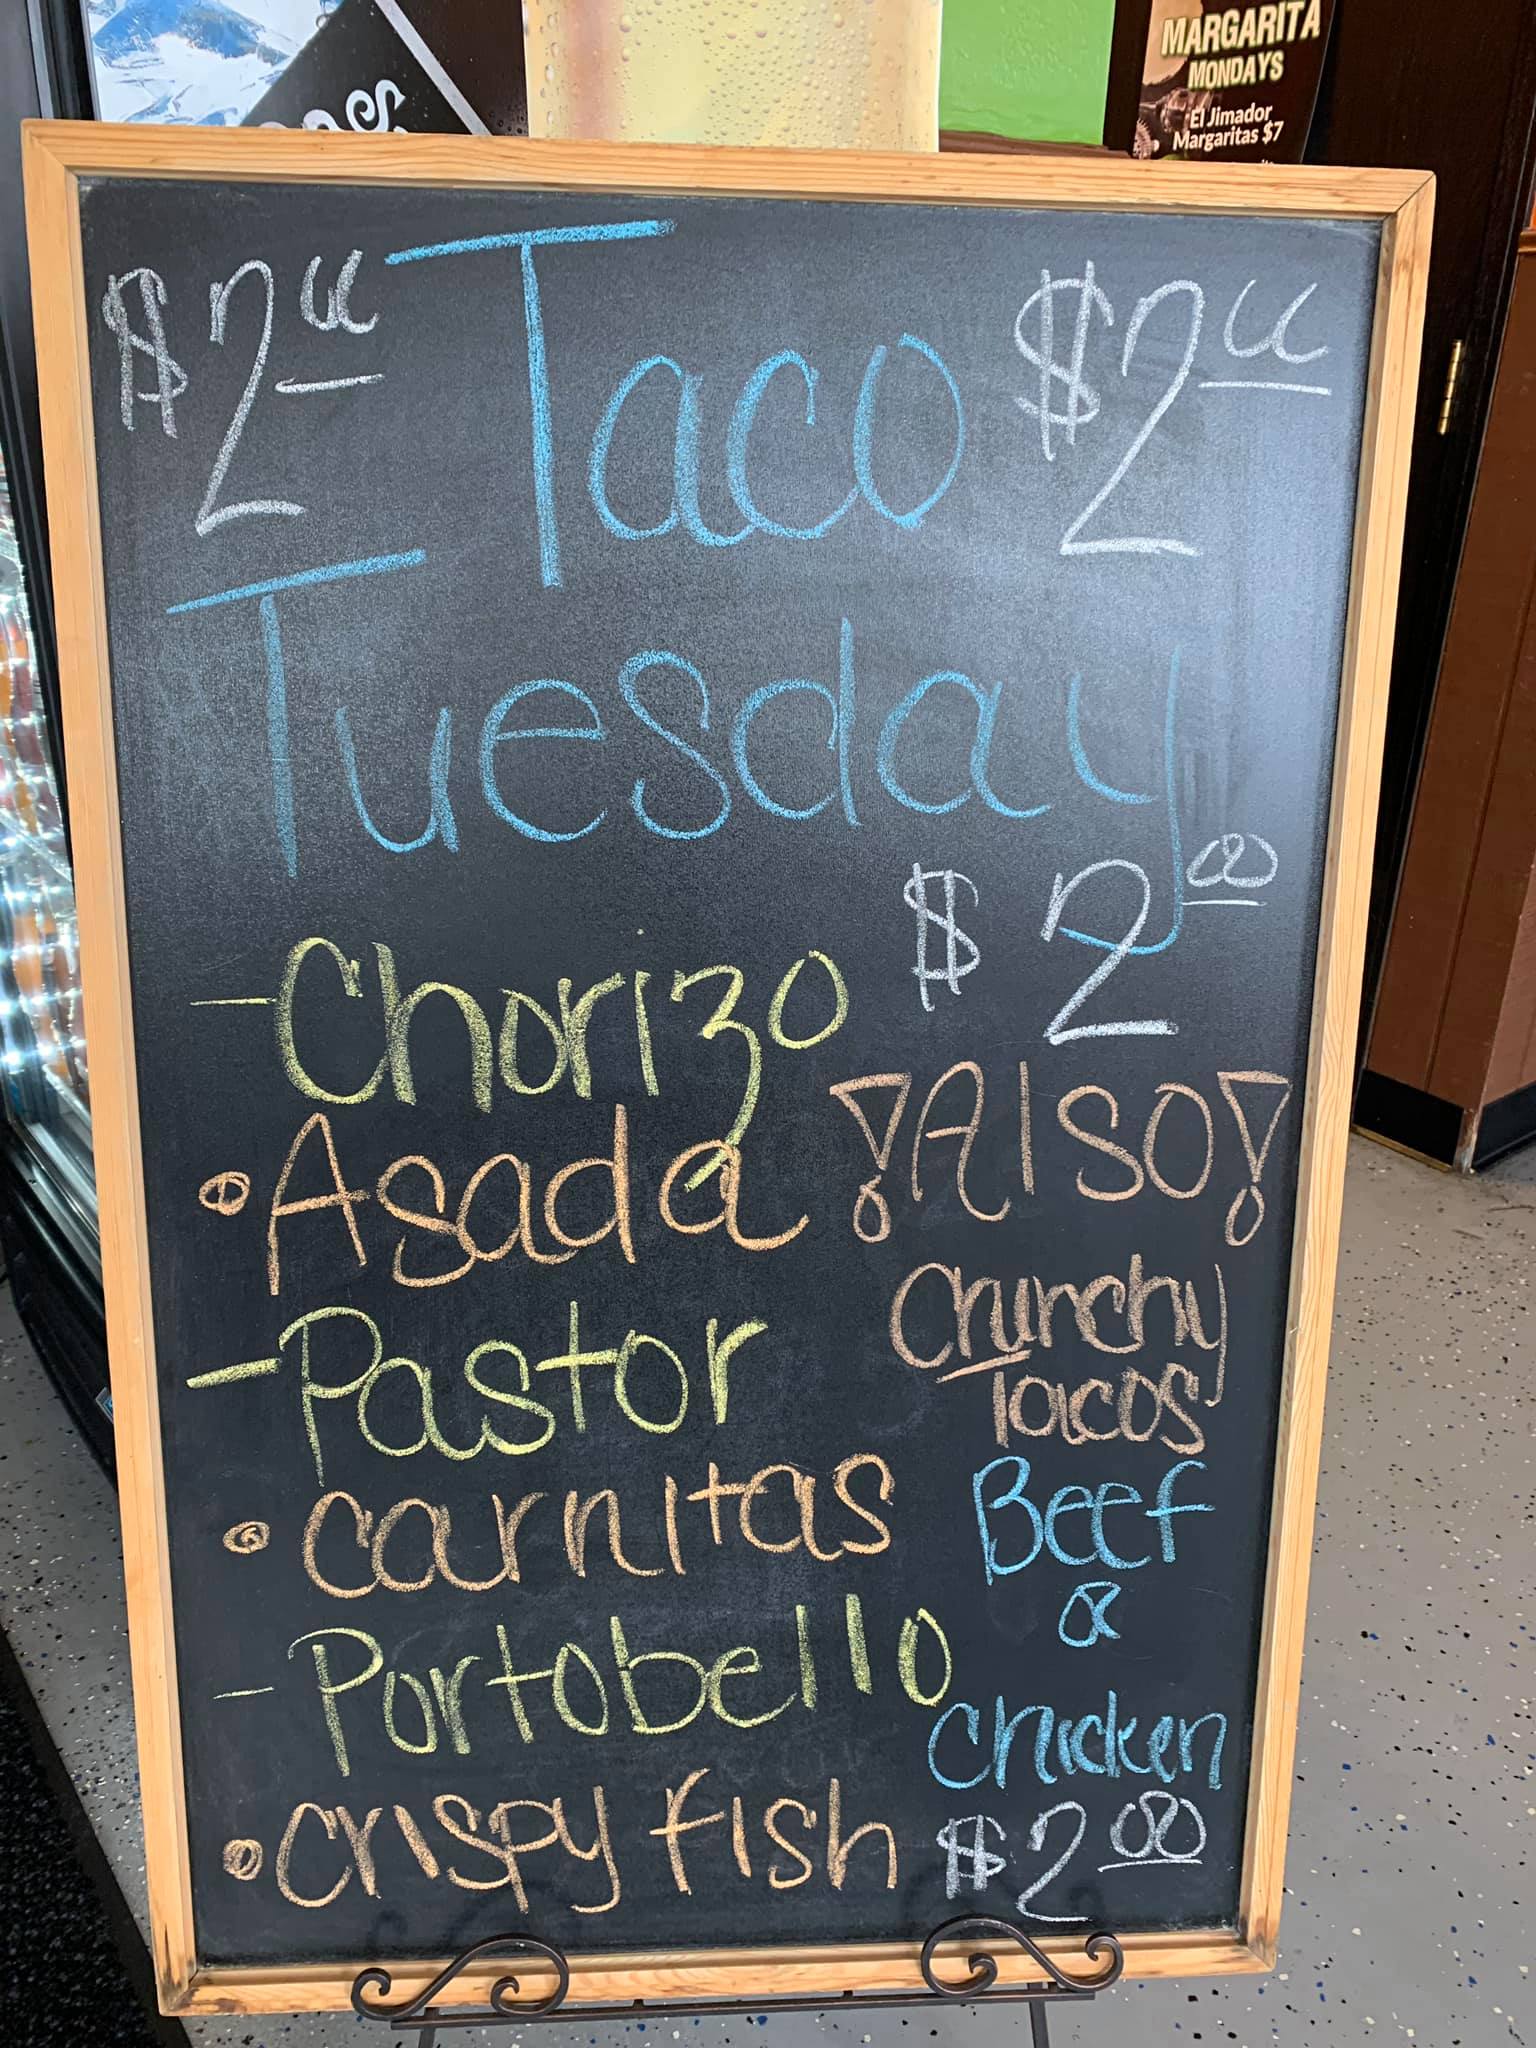 MARGARITA
MONDAYS
El Jimador
Margaritas $7
$2 Taco $2
Tuesday
$2.00
- Chorizo
• Asada
- Pastor
• Carnitas
- Portobello
• Crispy Fish
¡Also!
Crunchy
Tacos
Beef
&
Chicken
$2.00